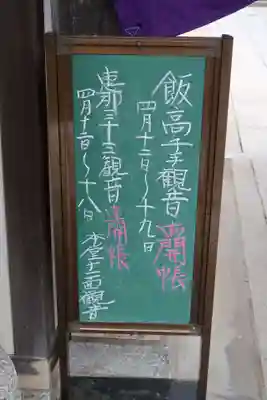 飯高千手観音 開帳
四月十二日～十九日
恵那三十三観音 開帳
四月十二日～十八日 本堂十一面観音